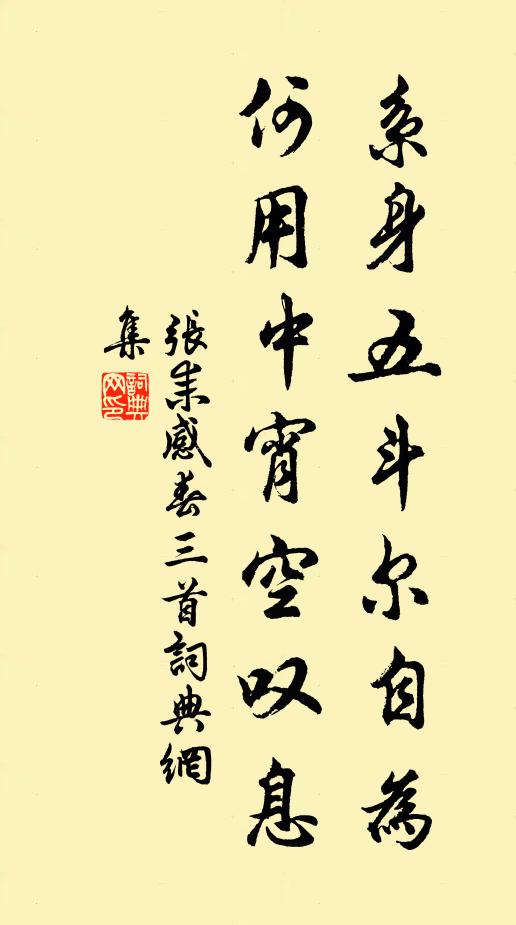 系身五斗尔自為
何用中宵空叹息
張耒感春三首詞典網
集
詞典
网印